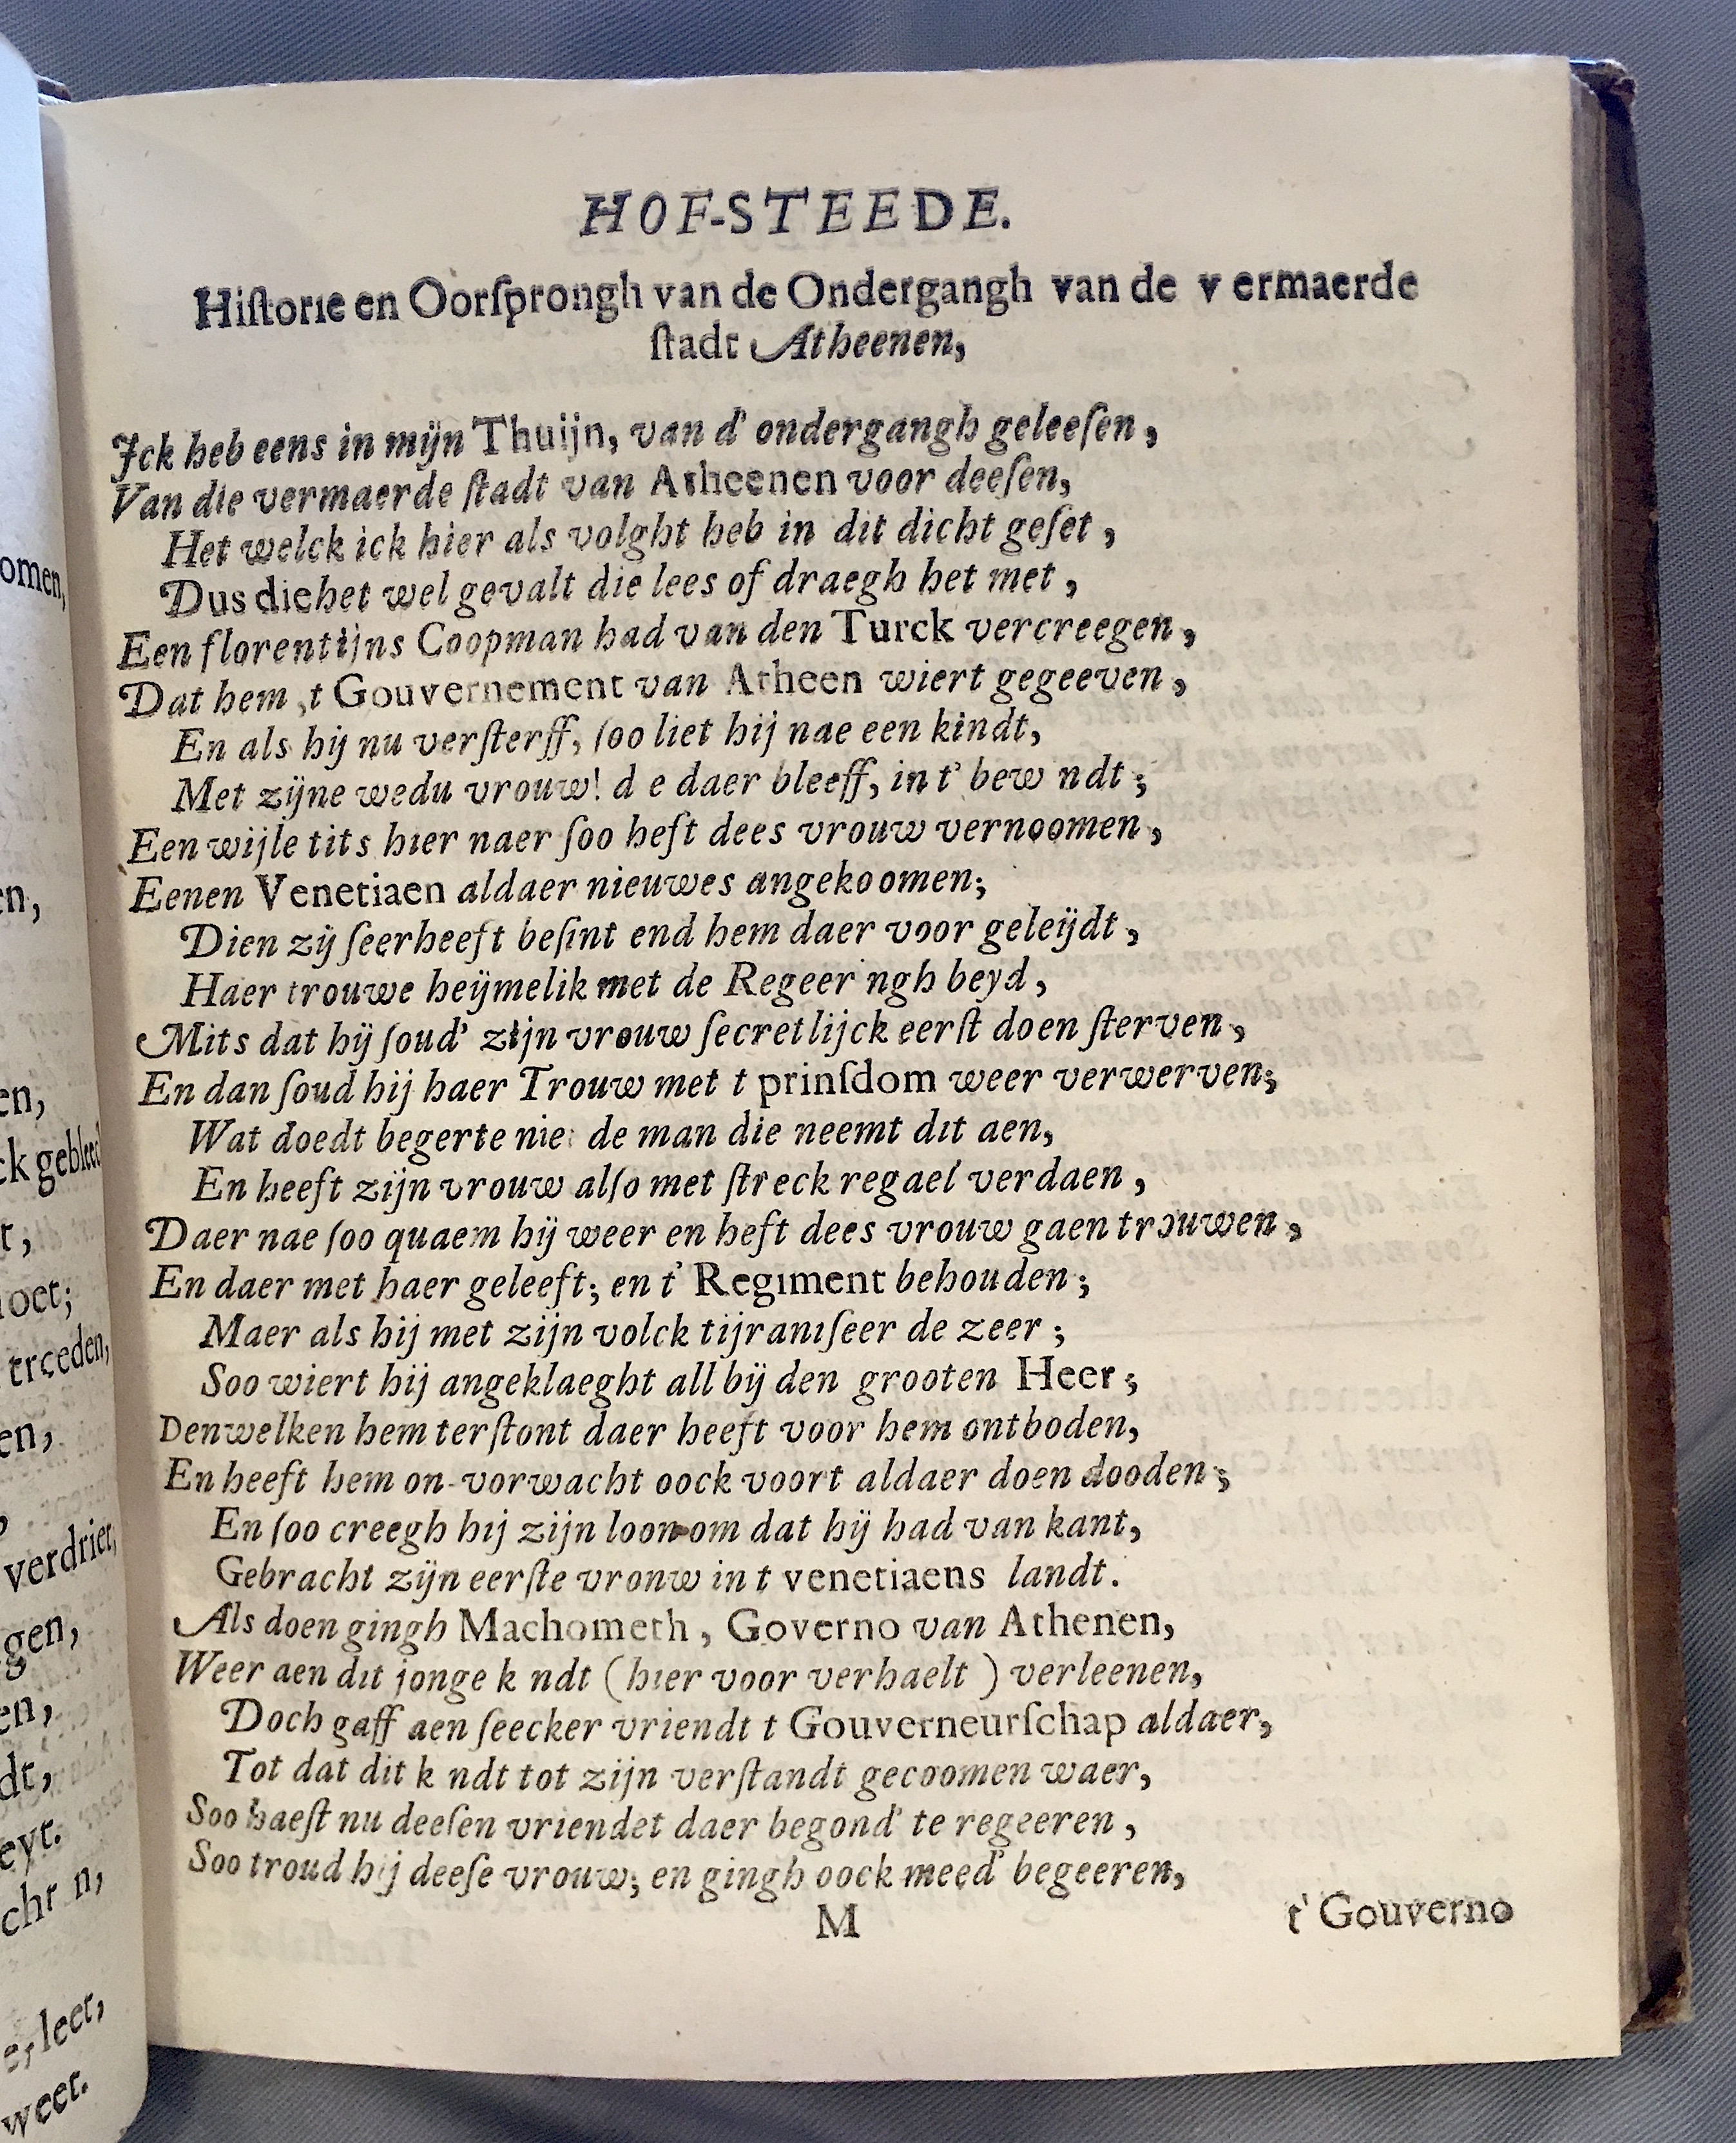 omen,
en,
en,
ck gebleed
t,
loet;
treeden,
en,
verdriet,
gen,
en,
dt,
eyt.
cht n,
e, leet,
weet.
HOF-STEEDE.
Hiſtorie en Oorſprongh van de Ondergangh van de v ermaerde
ſtadt Atheenen,
Ick heb eens in mijn Thuijn, van d' ondergangh geleeſen,
Van die vermaerde ſtadt van Atheenen voor deeſen,
Het welck ick hier als volght heb in dit dicht geſet,
Dus die het wel gevalt die lees of draegh het met,
Een florentijns Coopman had van den Turck vercreegen,
Dat hem ,t Gouvernement van Atheen wiert gegeeven,
En als hij nu verſterff, ſoo liet hij nae een kindt,
Met zijne wedu vrouw! d e daer bleeff, in t' bew ndt;
Een wijle tits hier naer ſoo heft dees vrouw vernoomen,
Eenen Venetiaen aldaer nieuwes angekoomen;
Dien zij ſeer heeft beſint end hem daer voor geleijdt,
Haer trouwe heijmelik met de Regeer ngh beyd,
Mits dat hij ſoud' zijn vrouw ſecretlijck eerſt doen ſterven,
En dan ſoud hij haer Trouw met t prinſdom weer verwerven;
Wat doedt begerte nie de man die neemt dit aen,
En heeft zijn vrouw alſo met ſtreck regael verdaen,
Daer nae ſoo quaem hij weer en heft dees vrouw gaen trouwen,
En daer met haer geleeft; en t' Regiment behouden;
Maer als hij met zijn volck tijraniſeer de zeer;
Soo wiert hij angeklaeght all bij den grooten Heer;
Denwelken hem terſtont daer heeft voor hem ontboden,
En heeft hem on-vorwacht oock voort aldaer doen dooden;
En ſoo creegh hij zijn loon om dat hij had van kant,
Gebracht zijn eerſte vronw in t venetiaens landt.
Als doen gingh Machometh, Governo van Athenen,
Weer aen dit jonge k ndt (hier voor verhaelt) verleenen,
Doch gaff aen ſeecker vriendt t Gouverneurſchap aldaer,
Tot dat dit k ndt tot zijn verſtandt gecoomen waer,
Soo haeſt nu deeſen vriendet daer begond' te regeeren,
Soo troud hij deeſe vrouw; en gingh oock meed' begeeren,
M
t' Gouverno